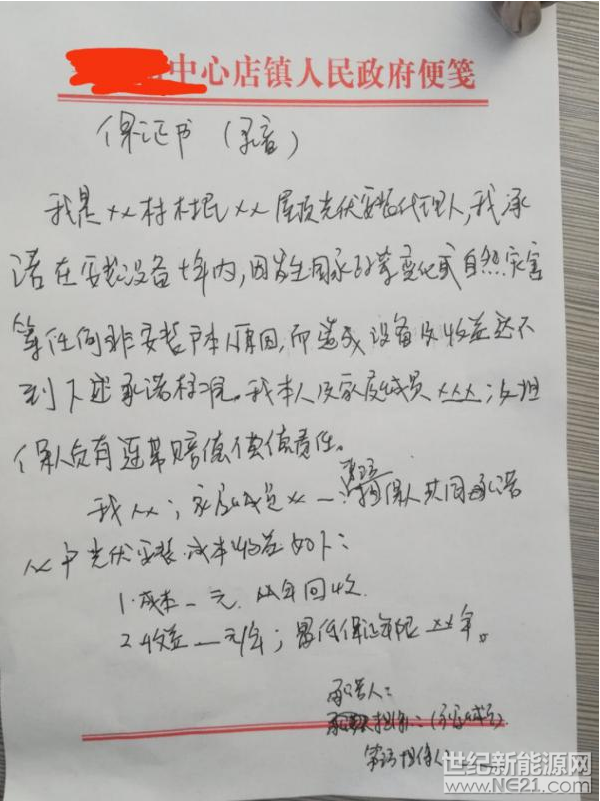 中心店镇人民政府便笺
保证书（录音）
我是××村村民××屋顶光伏安装代理人,我承
诺在安装设备十年内,因发生国家政策变化或自然灾害
等任何非安装户本人原因,而造成设备及收益达不
到下述承诺情况。我本人及家庭成员×××;及担
保人负有连带赔偿偿债责任。
第三
我××;家庭成员××一担保人共同承诺
××户光伏安装.成本收益如下:
1.成本一元.××年回收
2.收益__元/年;最低保证年限××年。
承诺人:
担保人:(家庭成员)
第三担保人:
世纪新能源网
www.NE21.com